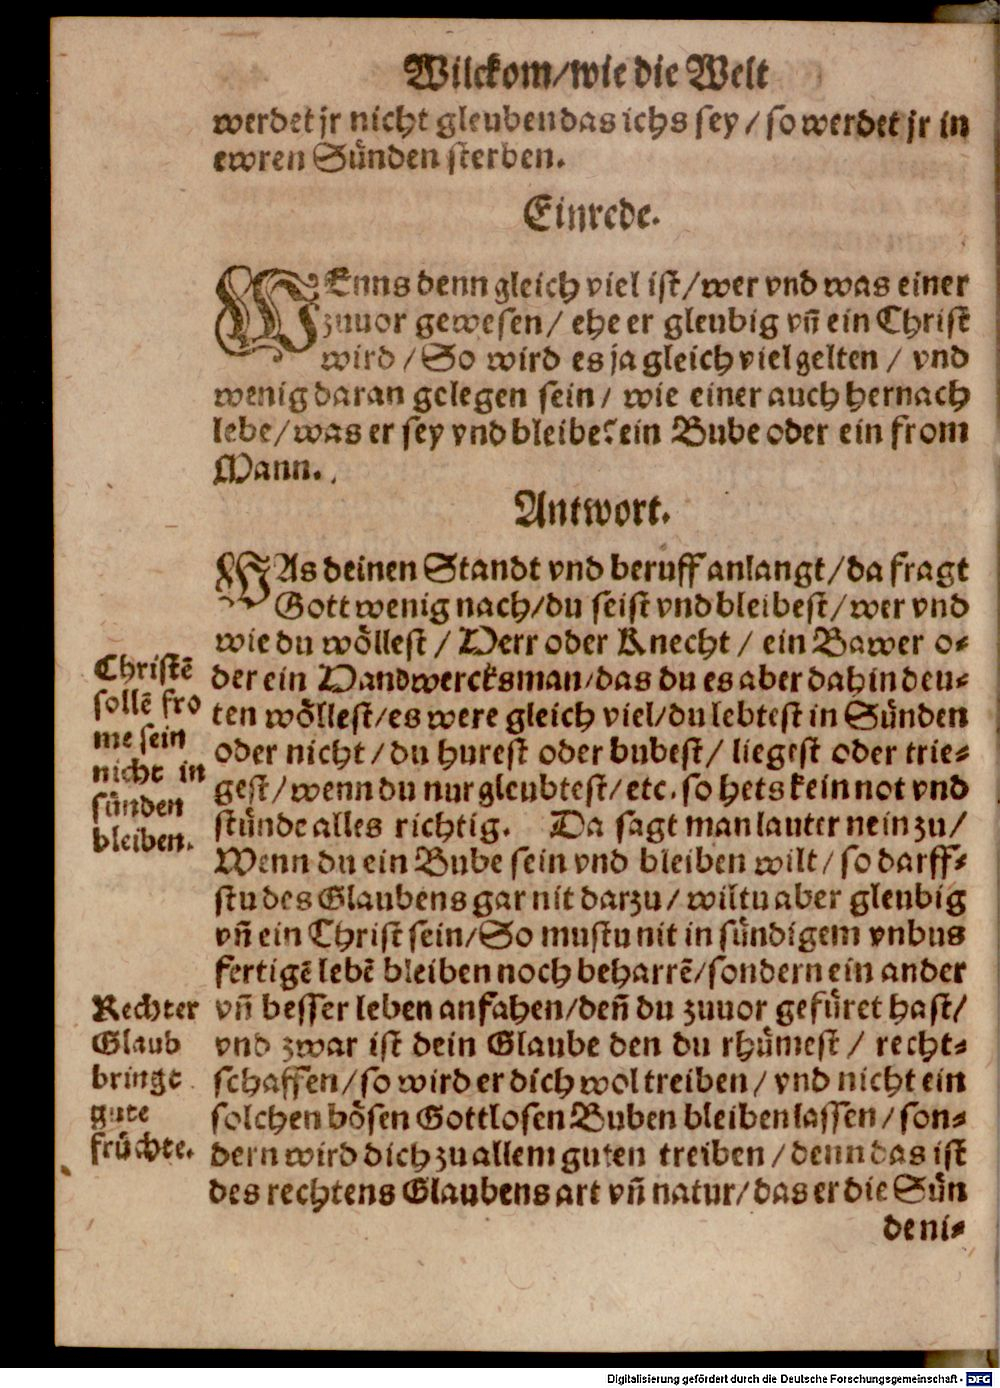 Wilckom/wie die Welt
werdet jr nicht gleuben das ichs sey / so werdet jr in
ewren Sünden sterben.
Einrede.
WEnns denn gleich viel ist/wer vnd was einer
zuuor gewesen/ ehe er gleubig vñ ein Christ
wird / So wird es ja gleich viel gelten / vnd
wenig daran gelegen sein / wie einer auch hernach
lebe/was er sey vnd bleibe? ein Bube oder ein from
Mann.
Antwort.
WAs deinen Standt vnd beruff anlangt/da fragt
Gott wenig nach/du seist vnd bleibest/wer vnd
wie du wöllest / Herr oder Knecht / ein Bawer o-
der ein Handwercksman/das du es aber dahin deu-
ten wöllest/es were gleich viel/du lebtest in Sünden
oder nicht / du hurest oder bubest/ liegest oder trie-
gest/wenn du nur gleubtest/etc. so hets kein not vnd
stünde alles richtig. Da sagt man lauter nein zu/
Wenn du ein Bube sein vnd bleiben wilt/ so darff-
stu des Glaubens gar nit darzu/ wiltu aber gleubig
vñ ein Christ sein/So mustu nit in sündigem vnbus
fertigē lebē bleiben noch beharrē/sondern ein ander
vñ besser leben anfahen/deñ du zuuor gefüret hast/
vnd zwar ist dein Glaube den du rhümest / recht-
schaffen/so wird er dich wol treiben/ vnd nicht ein
solchen bösen Gottlosen Buben bleiben lassen/son-
dern wird dich zu allem guten treiben /denn das ist
des rechtens Glaubens art vñ natur/das er die Sün
de ni-
Christē
sollē fro
me sein
nicht in
sünden
bleiben.
Rechter
Glaub
bringt
gute
früchte.
Digitalisierung gefördert durch die Deutsche Forschungsgemeinschaft - DFG